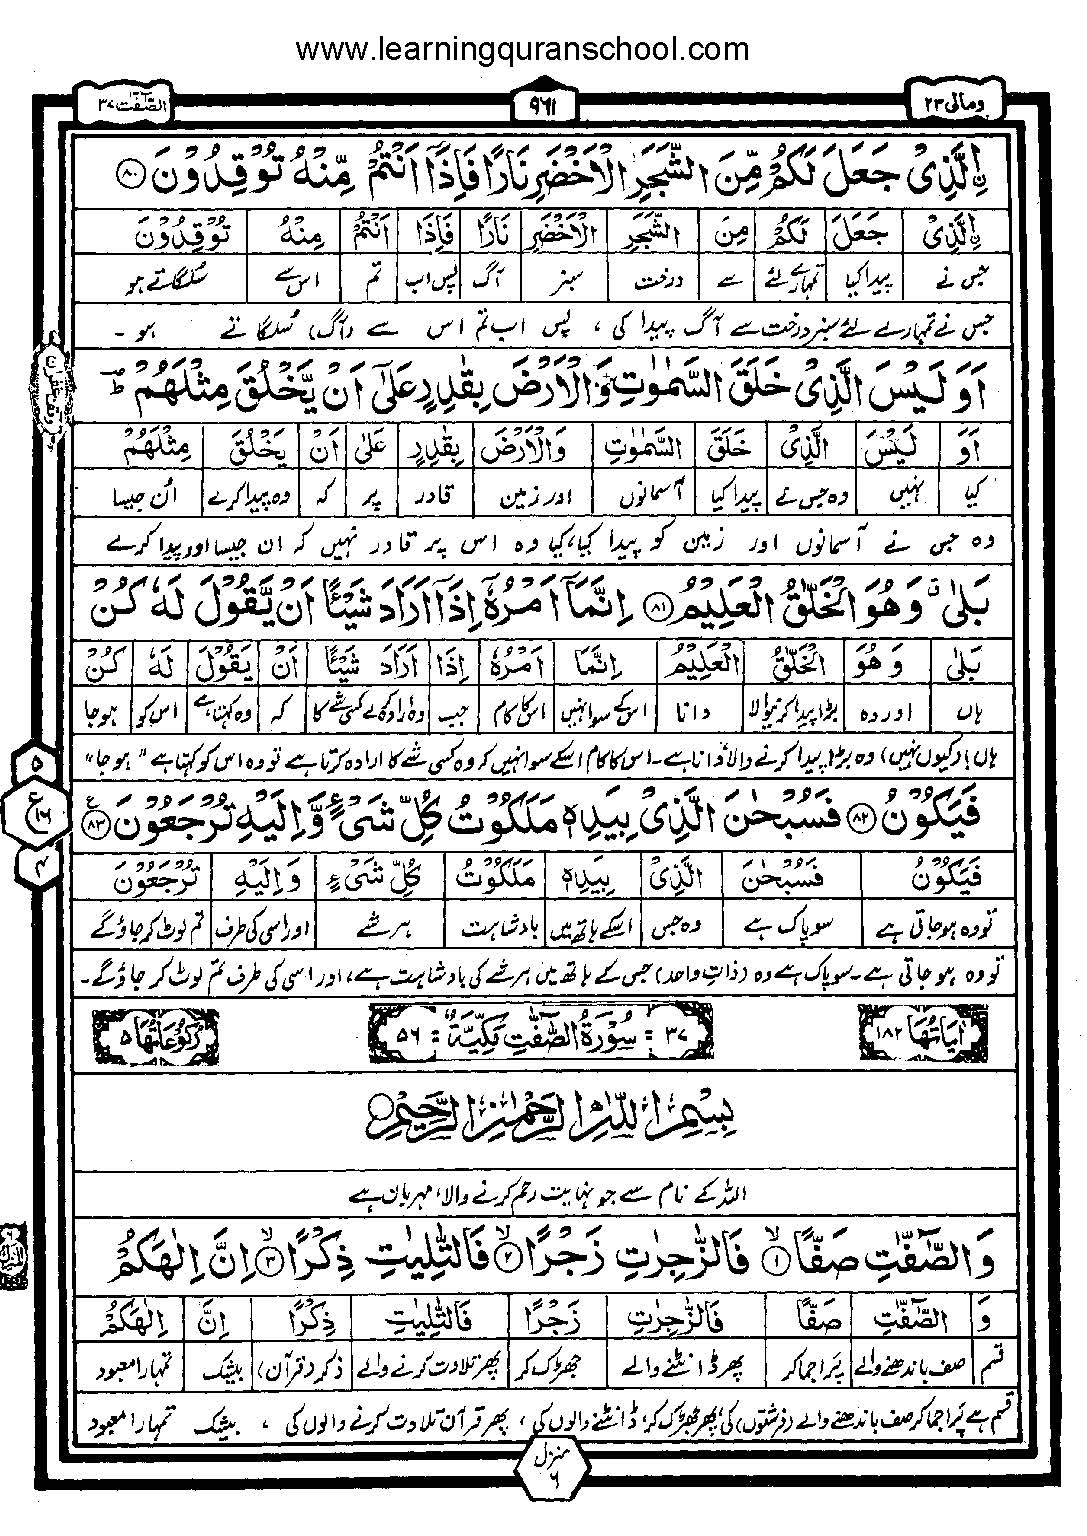 www.learningquranschool.com
ومالی ۲۳
۹۶۱
الصّٰٓفّٰت ۳۷
اۨلَّذِیْ جَعَلَ لَكُمْ مِّنَ الشَّجَرِ الْاَخْضَرِ نَارًا فَاِذَاۤ اَنْتُمْ مِّنْهُ تُوْقِدُوْنَ ۸۰
اۨلَّذِیْ جَعَلَ لَكُمْ مِنَ الشَّجَرِ الْاَخْضَرِ نَارًا فَاِذَا اَنْتُمْ مِنْهُ تُوْقِدُوْنَ
جس نے پیدا کیا تمہارے لئے سے درخت سبز آگ پس اب تم اس سے سُلگاتے ہو
جس نے تمہارے لئے سبز درخت سے آگ پیدا کی ، پس اب تم اس سے (آگ) سُلگاتے ہو ۔
اَوَ لَیْسَ الَّذِیْ خَلَقَ السَّمٰوٰتِ وَالْاَرْضَ بِقٰدِرٍ عَلٰۤی اَنْ یَّخْلُقَ مِثْلَهُمْ ؕ
اَوَ لَیْسَ الَّذِیْ خَلَقَ السَّمٰوٰتِ وَالْاَرْضَ بِقٰدِرٍ عَلٰی اَنْ یَخْلُقَ مِثْلَهُمْ
کیا نہیں وہ جس نے پیدا کیا آسمانوں اور زمین قادر پر کہ وہ پیدا کرے ان جیسا
وہ جس نے آسمانوں اور زمین کو پیدا کیا، کیا وہ اس پر قادر نہیں کہ ان جیسا اور پیدا کرے
بَلٰی ۗ وَهُوَ الْخَلّٰقُ الْعَلِیْمُ ۸۱ اِنَّمَاۤ اَمْرُهٗۤ اِذَاۤ اَرَادَ شَیْئًا اَنْ یَّقُوْلَ لَهٗ كُنْ
بَلٰی وَهُوَ الْخَلّٰقُ الْعَلِیْمُ اِنَّمَا اَمْرُهٗ اِذَا اَرَادَ شَیْئًا اَنْ یَقُوْلَ لَهٗ كُنْ
ہاں اور وہ بڑا پیدا کرنیوالا دانا اس کے سوا نہیں اس کا کام جب وہ ارادہ کرے کسی شے کا کہ وہ کہتا ہے اس کو ہو جا
ہاں (کیوں نہیں) وہ بڑا پیدا کرنے والا دانا ہے۔ اس کا کام اسکے سوا نہیں کہ وہ کسی شے کا ارادہ کرتا ہے تو وہ اس کو کہتا ہے "ہو جا"
فَیَكُوْنُ ۸۲ فَسُبْحٰنَ الَّذِیْ بِیَدِهٖ مَلَكُوْتُ كُلِّ شَیْءٍ وَّاِلَیْهِ تُرْجَعُوْنَ ۸۳ ع
فَیَكُوْنُ فَسُبْحٰنَ الَّذِیْ بِیَدِهٖ مَلَكُوْتُ كُلِّ شَیْءٍ وَاِلَیْهِ تُرْجَعُوْنَ
تو وہ ہو جاتی ہے سو پاک ہے وہ جس اسکے ہاتھ میں بادشاہت ہر شے اور اسی کی طرف تم لوٹ کر جاؤ گے
تو وہ ہو جاتی ہے۔ سو پاک ہے وہ (ذات واحد) جس کے ہاتھ میں ہر شے کی بادشاہت ہے، اور اسی کی طرف تم لوٹ کر جاؤ گے۔
اٰیَاتُهَا ۱۸۲
۳۷ : سُوْرَةُ الصّٰٓفّٰتِ مَكِّیَّةٌ : ۵۶
رُكُوْعَاتُهَا ۵
بِسْمِ اللّٰهِ الرَّحْمٰنِ الرَّحِیْمِ
اللہ کے نام سے جو نہایت رحم کرنے والا، مہربان ہے
وَالصّٰٓفّٰتِ صَفًّا ۙ۱ فَالزّٰجِرٰتِ زَجْرًا ۙ۲ فَالتّٰلِیٰتِ ذِكْرًا ۙ۳ اِنَّ اِلٰهَكُمْ
وَ الصّٰٓفّٰتِ صَفًّا فَالزّٰجِرٰتِ زَجْرًا فَالتّٰلِیٰتِ ذِكْرًا اِنَّ اِلٰهَكُمْ
قسم صف باندھنے والے پَرا جما کر پھر ڈانٹنے والے جھڑک کر پھر تلاوت کرنے والے ذکر (قرآن) بیشک تمہارا معبود
قسم ہے پَرا جما کر صف باندھنے والے (فرشتوں) کی، پھر جھڑک کر ڈانٹنے والوں کی ، پھر قرآن تلاوت کرنے والوں کی ، بیشک تمہارا معبود
منزل ۶
۵
ع ۱۶
۴